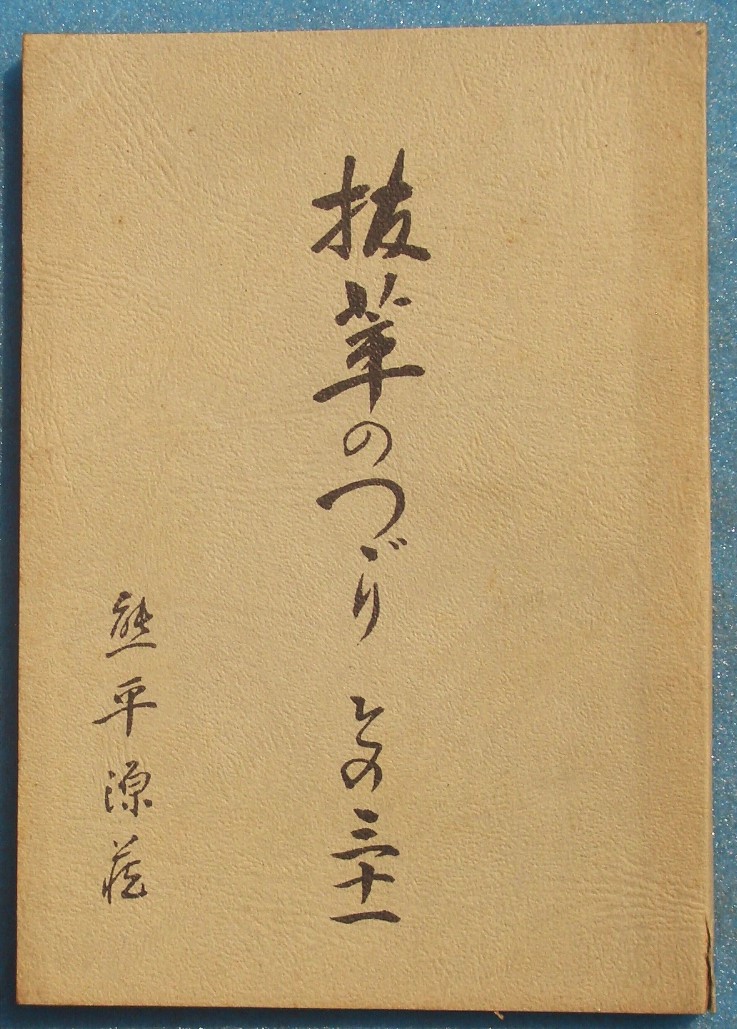 抜萃のつづり その三十一
熊平源蔵